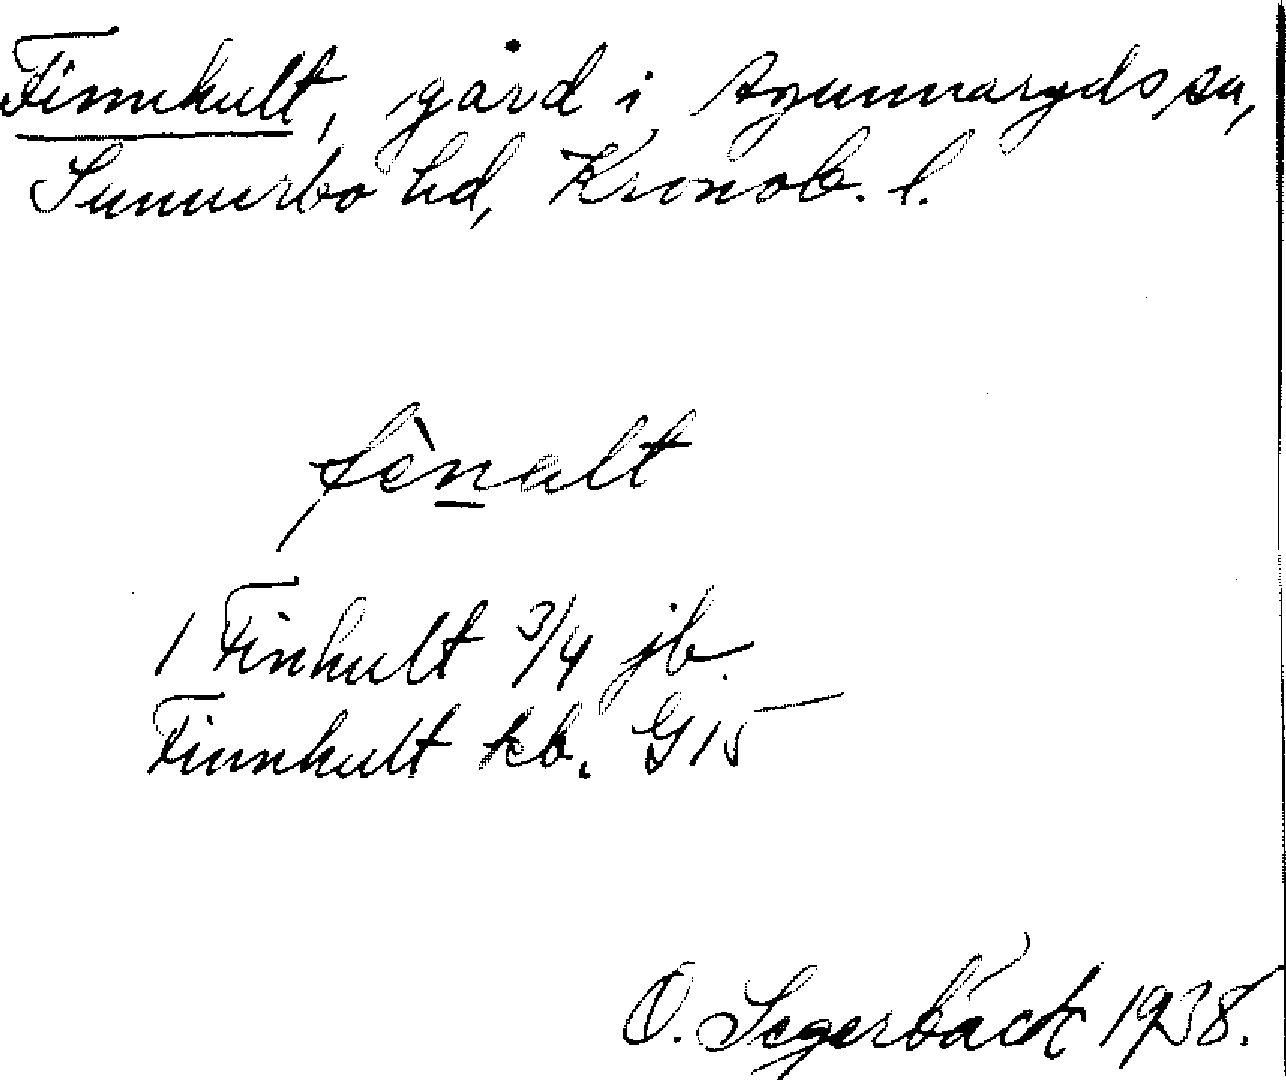 Finnhult, gård i Agunnaryds sn,
Sunnerbo hd, Kronob. l.
fènalt
1 Finhult 3/4 jb.
Finnhult kb. G 15
O. Segerbäck 1938.